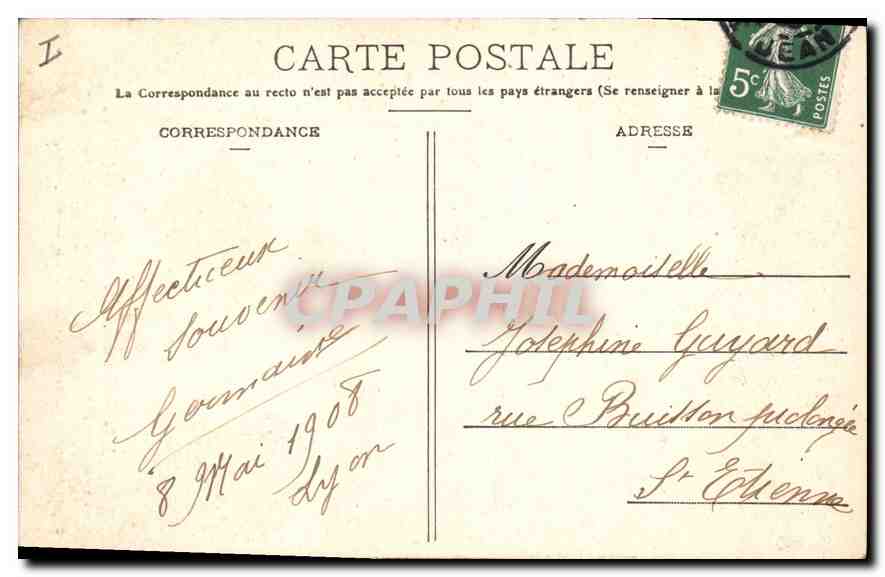 I
CARTE POSTALE
La Correspondance au recto n'est pas acceptée par tous les pays étrangers (Se renseigner à la
CORRESPONDANCE
ADRESSE
JEAN
5c
POSTES
Affectueux
Souvenir
Germaine
8 Mai 1908
Lyon
Mademoiselle
Joséphine Guyard
rue Buisson prolongée
St Etienne
CPAPHIL